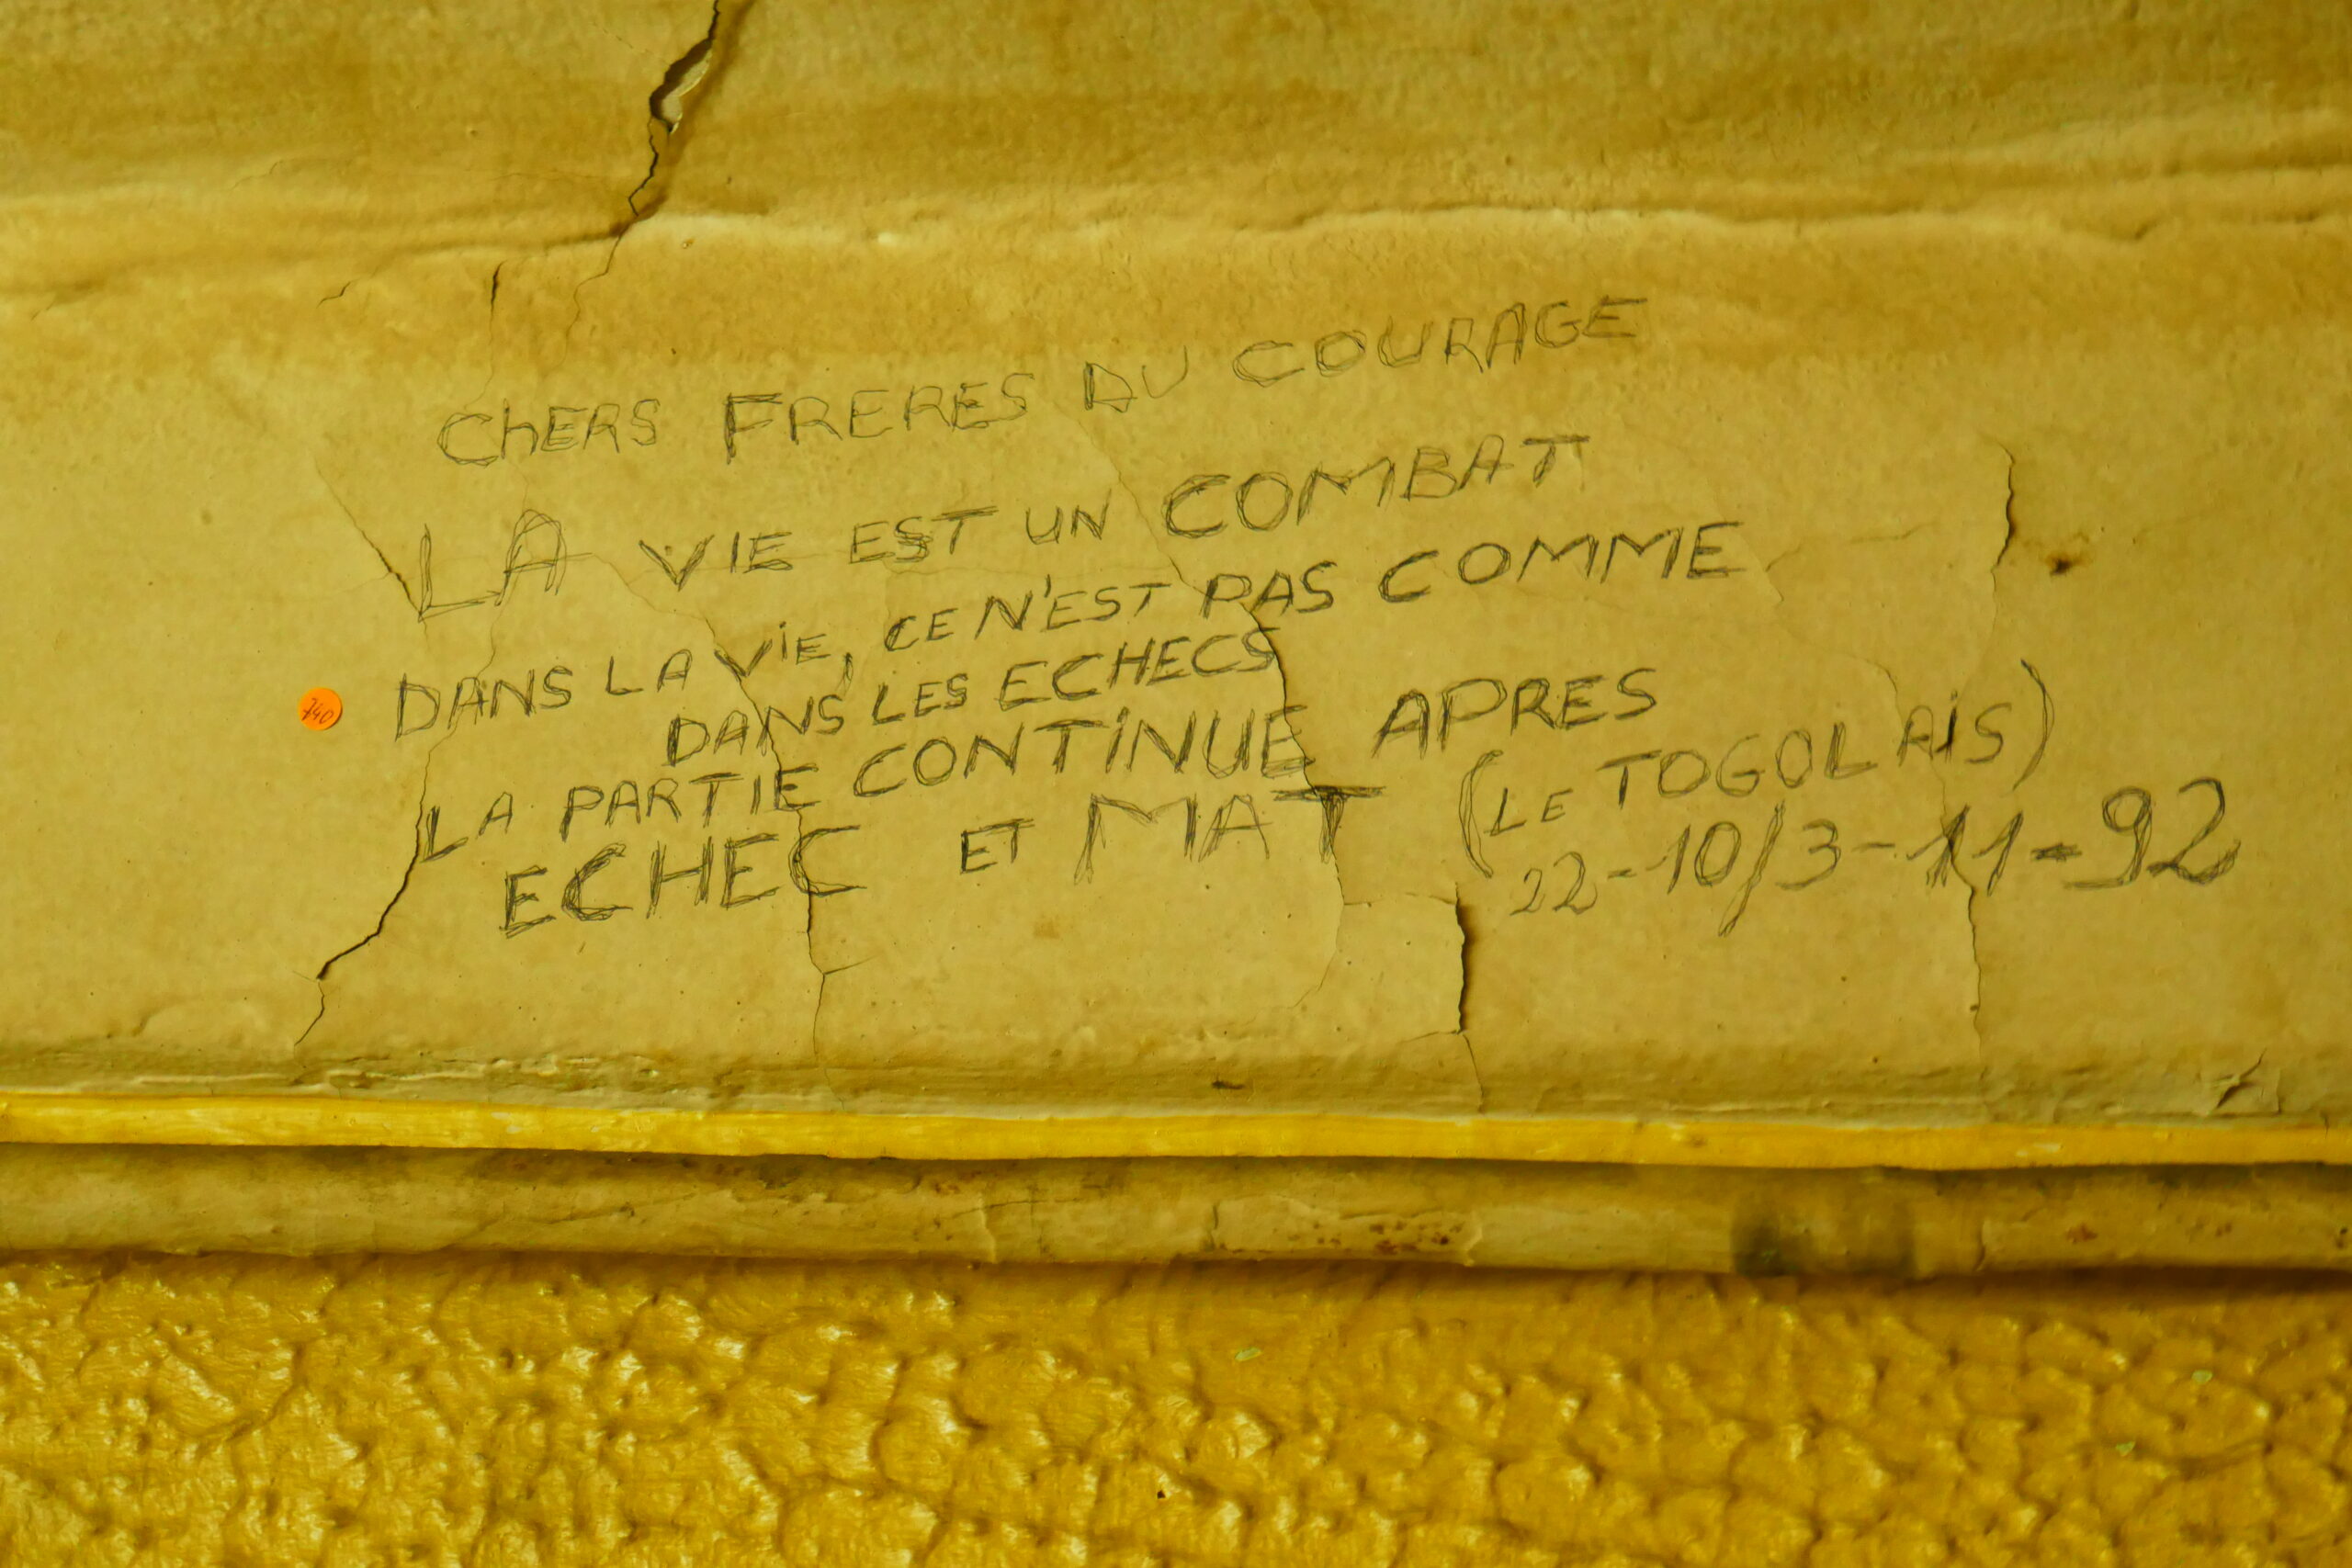 CHERS FRERES DU COURAGE
LA VIE EST UN COMBAT
DANS LA VIE, CE N'EST PAS COMME
DANS LES ECHECS
LA PARTIE CONTINUE APRES
ECHEC ET MAT
(LE TOGOLAIS)
22-10/3-11-92
740